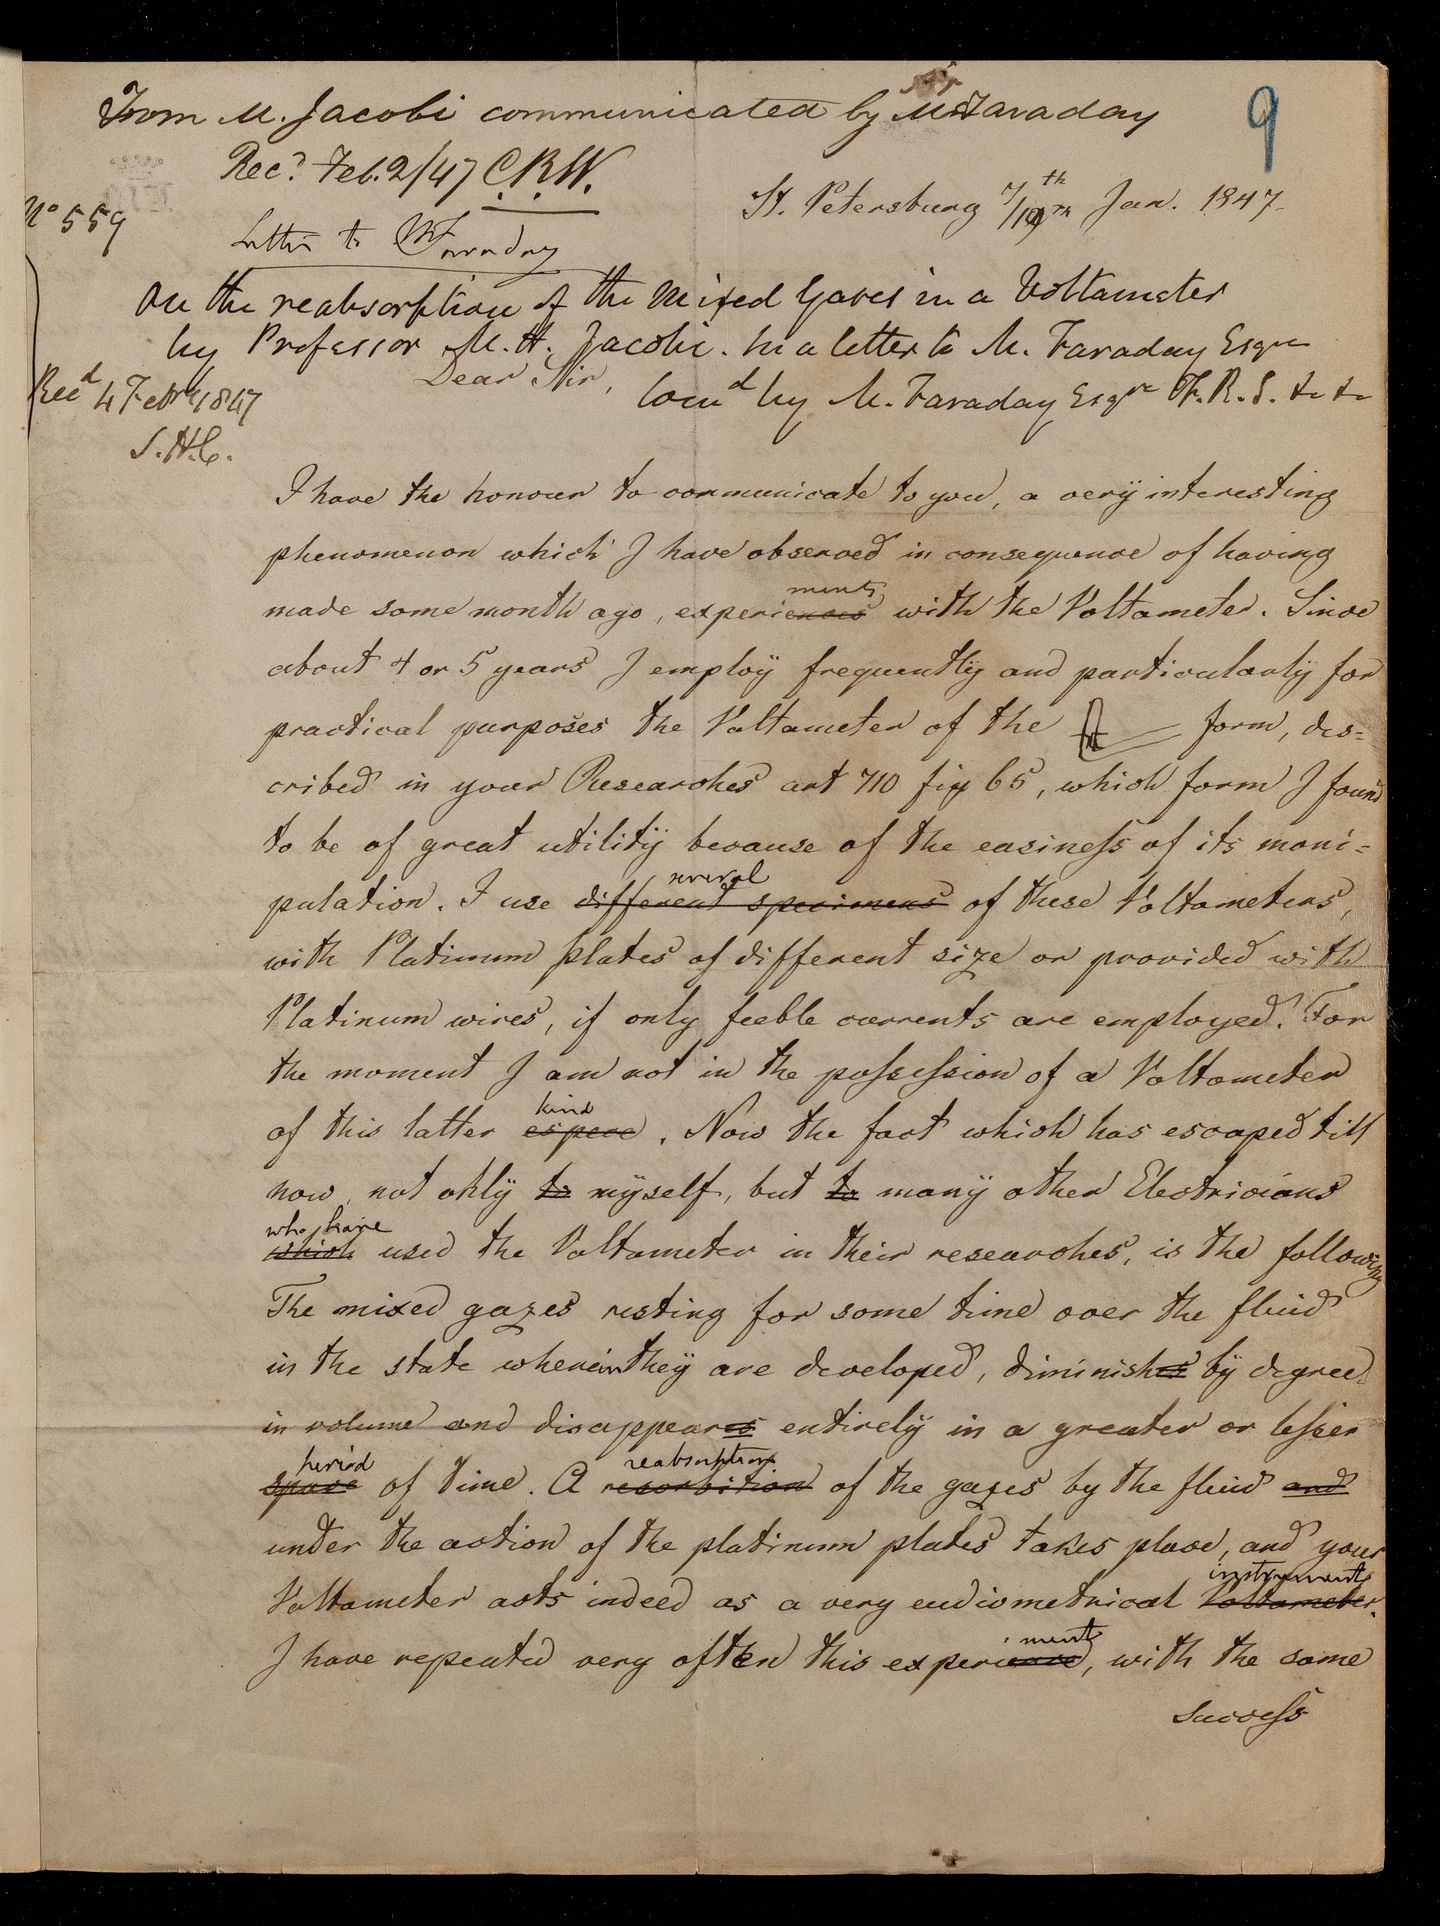 From M. Jacobi communicated by Mr Faraday
9
Recd. Feb. 2/47 C.R.W.
St. Petersburg 7/19th Jan. 1847.
No 559
Letter to Mr Faraday
On the reabsorption of the Mixed Gases in a Voltameter
by Professor M. H. Jacobi. In a letter to M. Faraday Esqre
Dear Sir,
Comd by M. Faraday Esqre F.R.S. &c &c
Recd 4 Feby 1847
S.H.C.
I have the honour to communicate to you, a verÿ interesting
phenomenon which I have observed in consequence of having
made some month ago, experiences ments with the Voltameter. Since
about 4 or 5 years I employ frequentlÿ and particularlÿ for
practical purposes the Voltameter of the form, des=
cribed in your Researches art 710 fig 65, which form I found
to be of great utilitÿ because of the easiness of its mani=
pulation. I use different specimens several of these Voltameters,
with Platinum plates of different size or provided with
Platinum wires, if only feeble currents are employed. For
the moment I am not in the possession of a Voltameter
of this latter espece kind. Now the fact which has escaped till
now, not only to myself, but to manÿ other Electricians
which who have used the Voltameter in their researches, is the following
The mixed gazes resting for some time over the fluid
in the state wherein theÿ are developed, diminishes bÿ degrees
in volume and disappeares entirelÿ in a greater or lesser
space period of time. A resorbition reabsorption of the gazes by the fluid and
under the action of the platinum plates takes place, and your
Voltameter acts indeed as a very eudiometrical Voltameter instrument.
I have repeated very often this experience ment, with the same
success